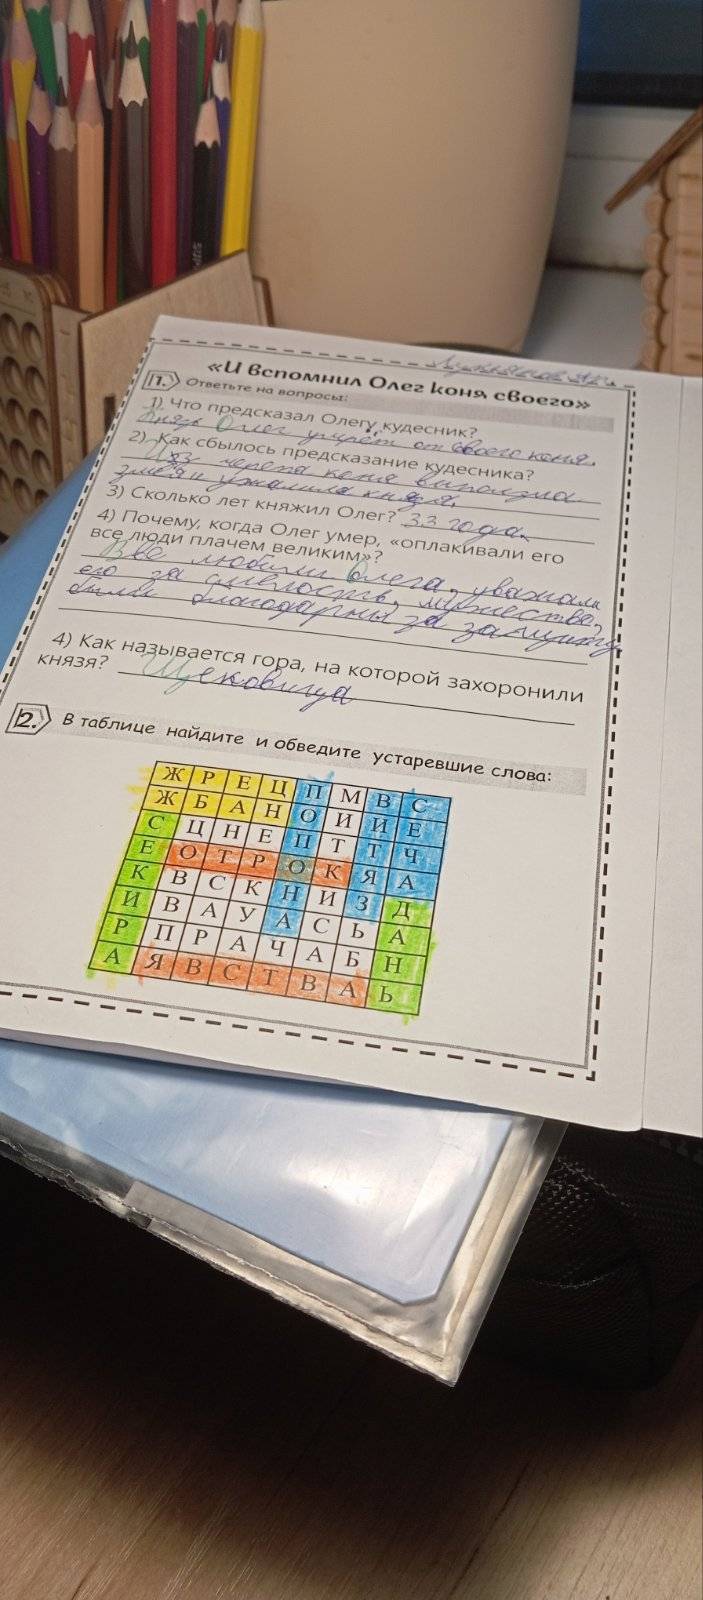 «И вспомнил Олег коня своего»
1. Ответьте на вопросы:
1) Что предсказал Олегу кудесник?
Князь Олег умрёт от своего коня.
2) Как сбылось предсказание кудесника?
Из черепа коня выползла
змея и ужалила князя.
3) Сколько лет княжил Олег? 33 года.
4) Почему, когда Олег умер, «оплакивали его
все люди плачем великим»?
Все любили Олега, уважали
его за смелость, мужество,
были благодарны за защиту
4) Как называется гора, на которой захоронили
князя? Щековица
2. В таблице найдите и обведите устаревшие слова:
Ж Р Е Ц П М В С
Ж Б А Н О И И Е
С Ц Н Е П Т Т Ч
Е О Т Р О К Я А
К В С К Н И З Д
И В А У А С Ь А
Р П Р А Ч А Б Н
А Я В С Т В А Ь